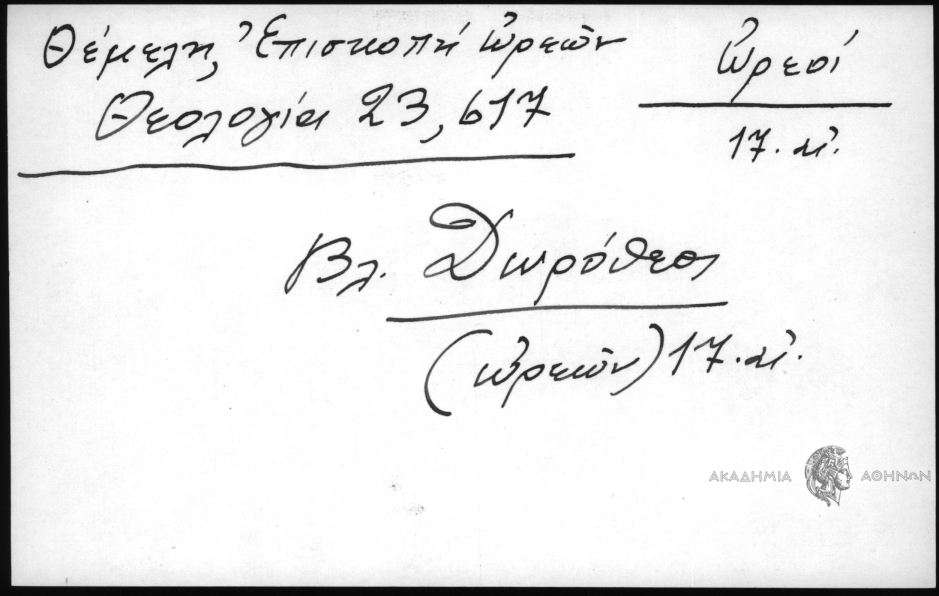 Θέμελη, Ἐπισκοπή Ὠρεῶν
Θεολογία 23, 617
Ὠρεοί
17. αἰ.
Βλ. Δωρόθεος
(Ὠρεῶν) 17. αἰ.
ΑΚΑΔΗΜΙΑ ΑΘΗΝΩΝ